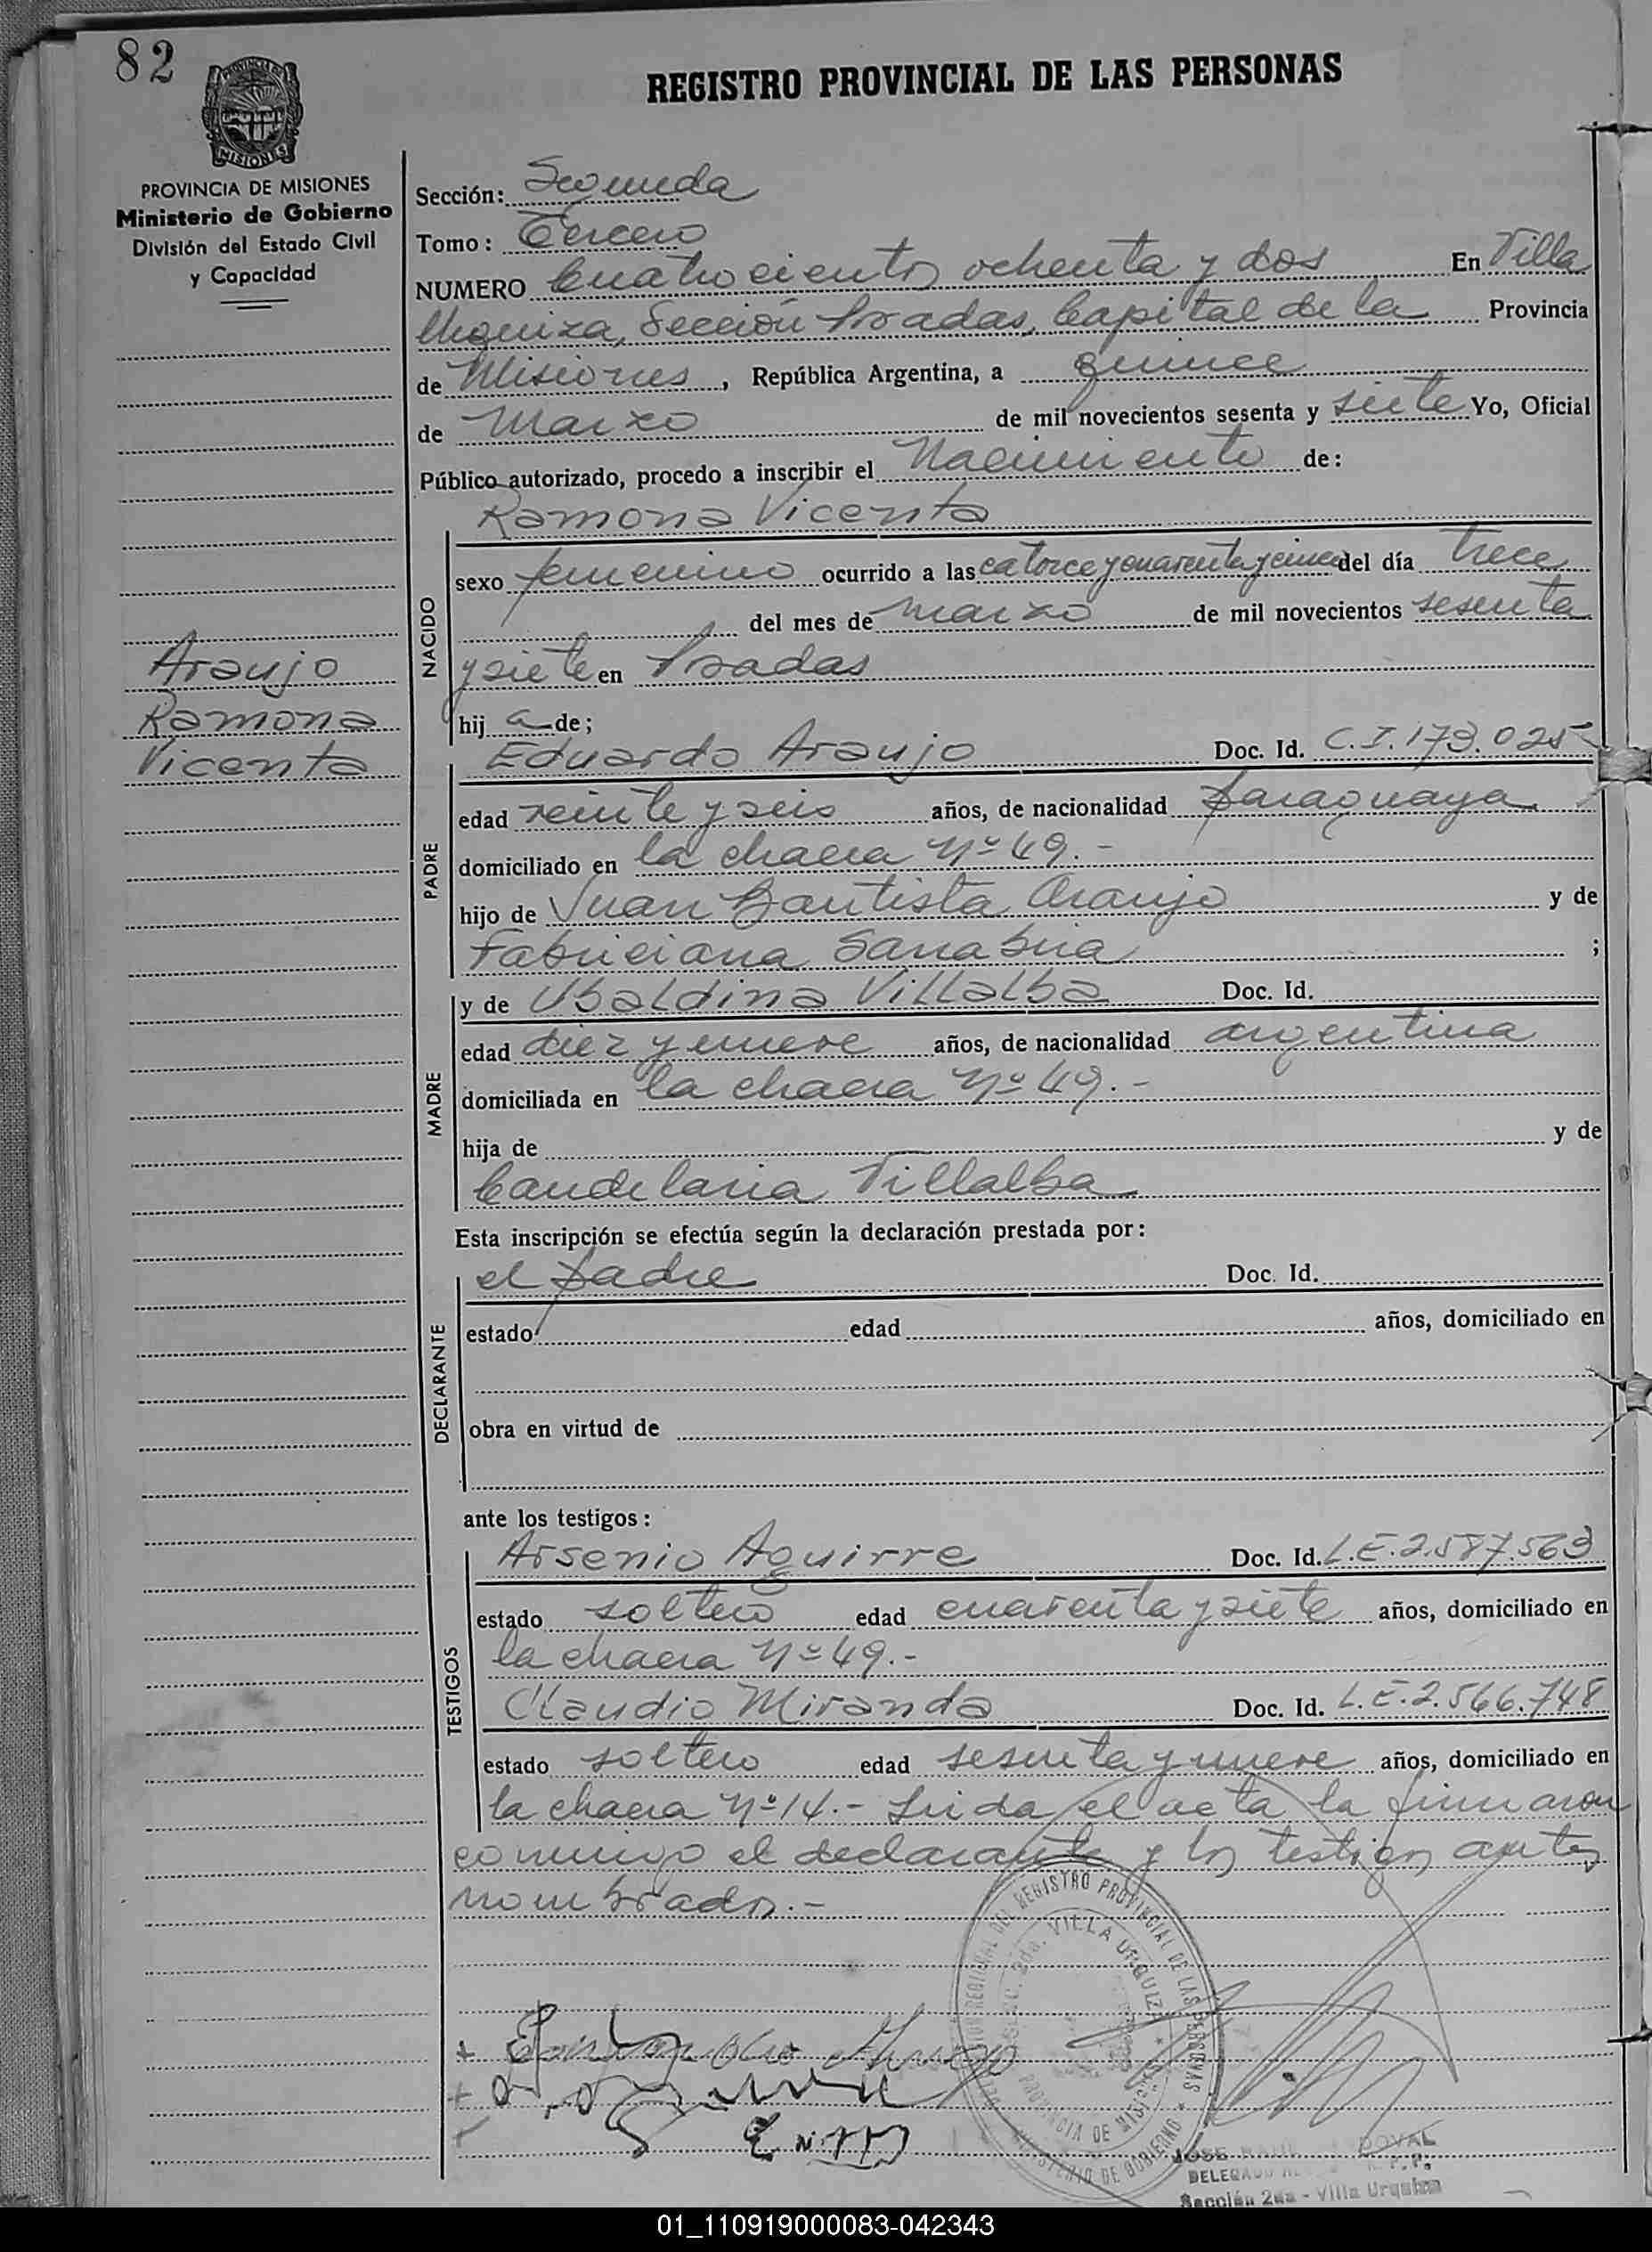 82
REGISTRO PROVINCIAL DE LAS PERSONAS
MISIONES
PROVINCIA DE MISIONES
Ministerio de Gobierno
División del Estado Civil
y Capacidad
Sección: Segunda
Tomo: Tercero
NUMERO Cuatrocientos ochenta y dos En Villa
Urquiza, Sección Posadas, Capital de la Provincia
de Misiones, República Argentina, a quince
de Marzo de mil novecientos sesenta y siete Yo, Oficial
Público autorizado, procedo a inscribir el Nacimiento de:
Ramona Vicenta
NACIDO
sexo femenino ocurrido a las catorce y cuarenta y cinco del día trece
del mes de marzo de mil novecientos sesenta
y siete en Posadas
hij a de;
Araujo
Ramona
Vicenta
Eduardo Araujo Doc. Id. C.I. 173.025
PADRE
edad veinte y seis años, de nacionalidad paraguaya
domiciliado en la chacra Nº 49.-
hijo de Juan Bautista Araujo y de
Fabriciana Sanabria ;
y de Ubaldina Villalba Doc. Id.
MADRE
edad diez y nueve años, de nacionalidad argentina
domiciliada en la chacra Nº 49.-
hija de y de
Candelaria Villalba
Esta inscripción se efectúa según la declaración prestada por:
el padre Doc. Id.
DECLARANTE
estado edad años, domiciliado en
obra en virtud de
ante los testigos:
Arsenio Aguirre Doc. Id. L.E. 2.587.563
TESTIGOS
estado soltero edad cuarenta y siete años, domiciliado en
la chacra Nº 49.-
Claudio Miranda Doc. Id. L.E. 2.566.748
estado soltero edad sesenta y nueve años, domiciliado en
la chacra Nº 14.- Leida el acta la firmaron
conmigo el declarante y los testigos antes
nombrados.-
REGISTRO PROVINCIAL DE LAS PERSONAS
VILLA URQUIZA
PROVINCIA DE MISIONES
MINISTERIO DE GOBIERNO
JOSE
Sección 2da - Villa Urquiza
01_110919000083-042343